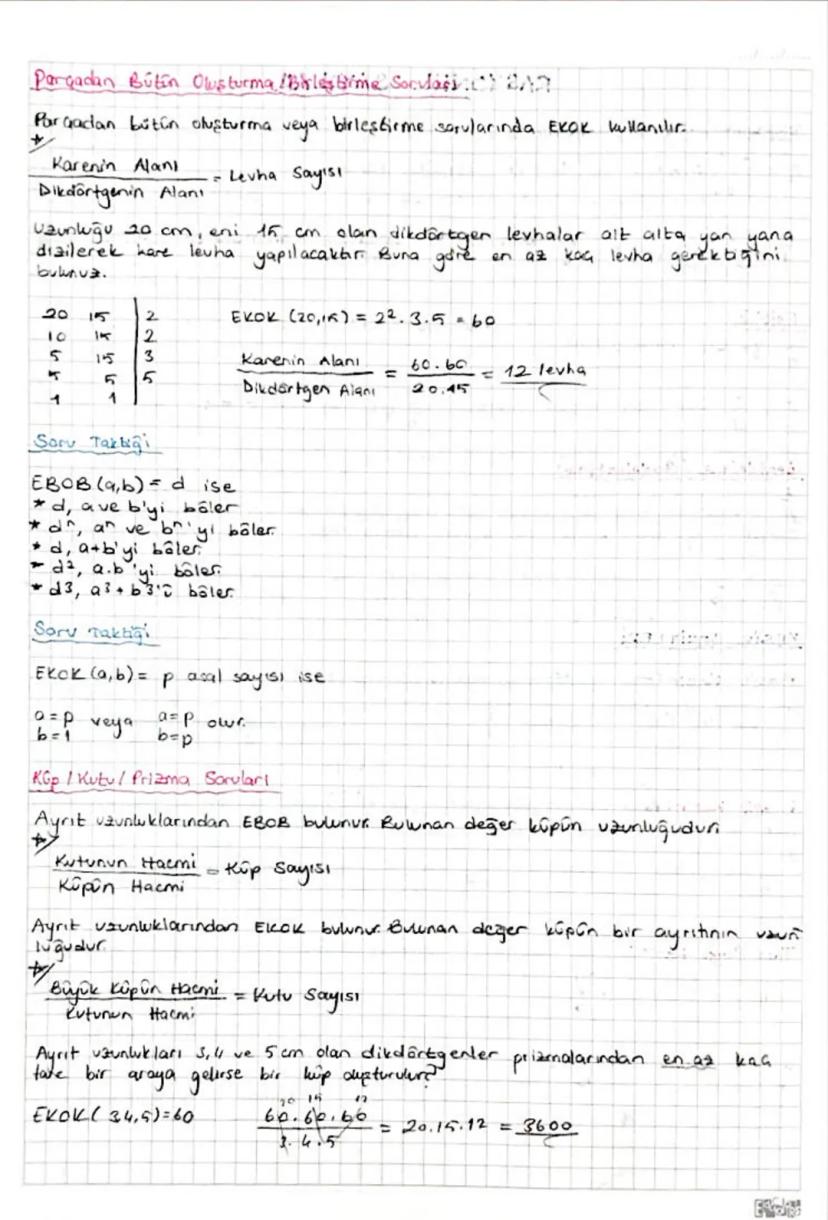 Parçadan Bütün Oluşturma / Birleştirme Soruları
Parçadan bütün oluşturma veya birleştirme sorularında EKOK kullanılır.
*
Karenin Alanı
Dikdörtgenin Alanı
= Levha Sayısı
Uzunluğu 20 cm, eni 15 cm olan dikdörtgen levhalar alt alta yan yana
dizilerek kare levha yapılacaktır. Buna göre en az kaç levha gerektiğini
bulunuz.
20 15 | 2
10 15 | 2
5 15 | 3
5 5 | 5
1 1
EKOK (20,15) = 2². 3. 5 = 60
Karenin Alanı / Dikdörtgen Alanı = 60.60 / 20.15 = 12 levha
Soru Taktiği
EBOB (a,b) = d ise
* d, a ve b'yi böler
* dⁿ, aⁿ ve bⁿ'yi böler.
* d, a+b'yi böler.
* d², a.b'yi böler.
* d3, a³ + b3'ü böler.
Soru Taktiği
EKOK (a,b) = p asal sayısı ise
a=p veya a=p olur.
b=1 b=p
Küp / Kutu / Prizma Soruları
Ayrıt uzunluklarından EBOB bulunur. Bulunan değer küpün uzunluğudur.
*
Kutunun Hacmi
Küpün Hacmi
= Küp Sayısı
Ayrıt uzunluklarından EKOK bulunur. Bulunan değer küpün bir ayrıtının uzun
luğudur.
*
Büyük Küpün Hacmi
Kutunun Hacmi
= Kutu Sayısı
Ayrıt uzunlukları 3, 4 ve 5 cm olan dikdörtgenler prizmalarından en az kaç
tane bir araya gelirse bir küp oluşturulur?
EKOK( 3,4,5)=60
20 15 12
60.60.60 / 3.4.5 = 20.15.12 = 3600